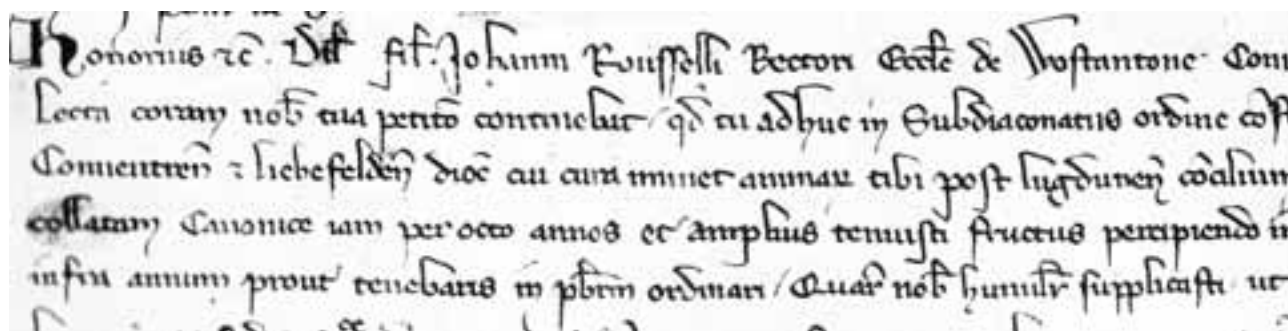 Honorius ⁊c̄. Dil̄ fil̄. Johanni Rousselli Rectori Eccl̄e de Wostantone
Lecta coram nob̄ tua petit̄o continebat / qd̄ tu adhuc in Subdiaconatus ordine
Conuentren̄ ⁊ Lichefelden̄ dioc̄ cui cura iminet animar̄ tibi post lugdunen̄ co̅cilium
collatam Canonice iam per octo annos et amplius tenuisti fructus percipiendo
infra annum prout tenebaris in pb̄rm ordinari / Quar̄ nob̄ humilr̄ supplicasti ut